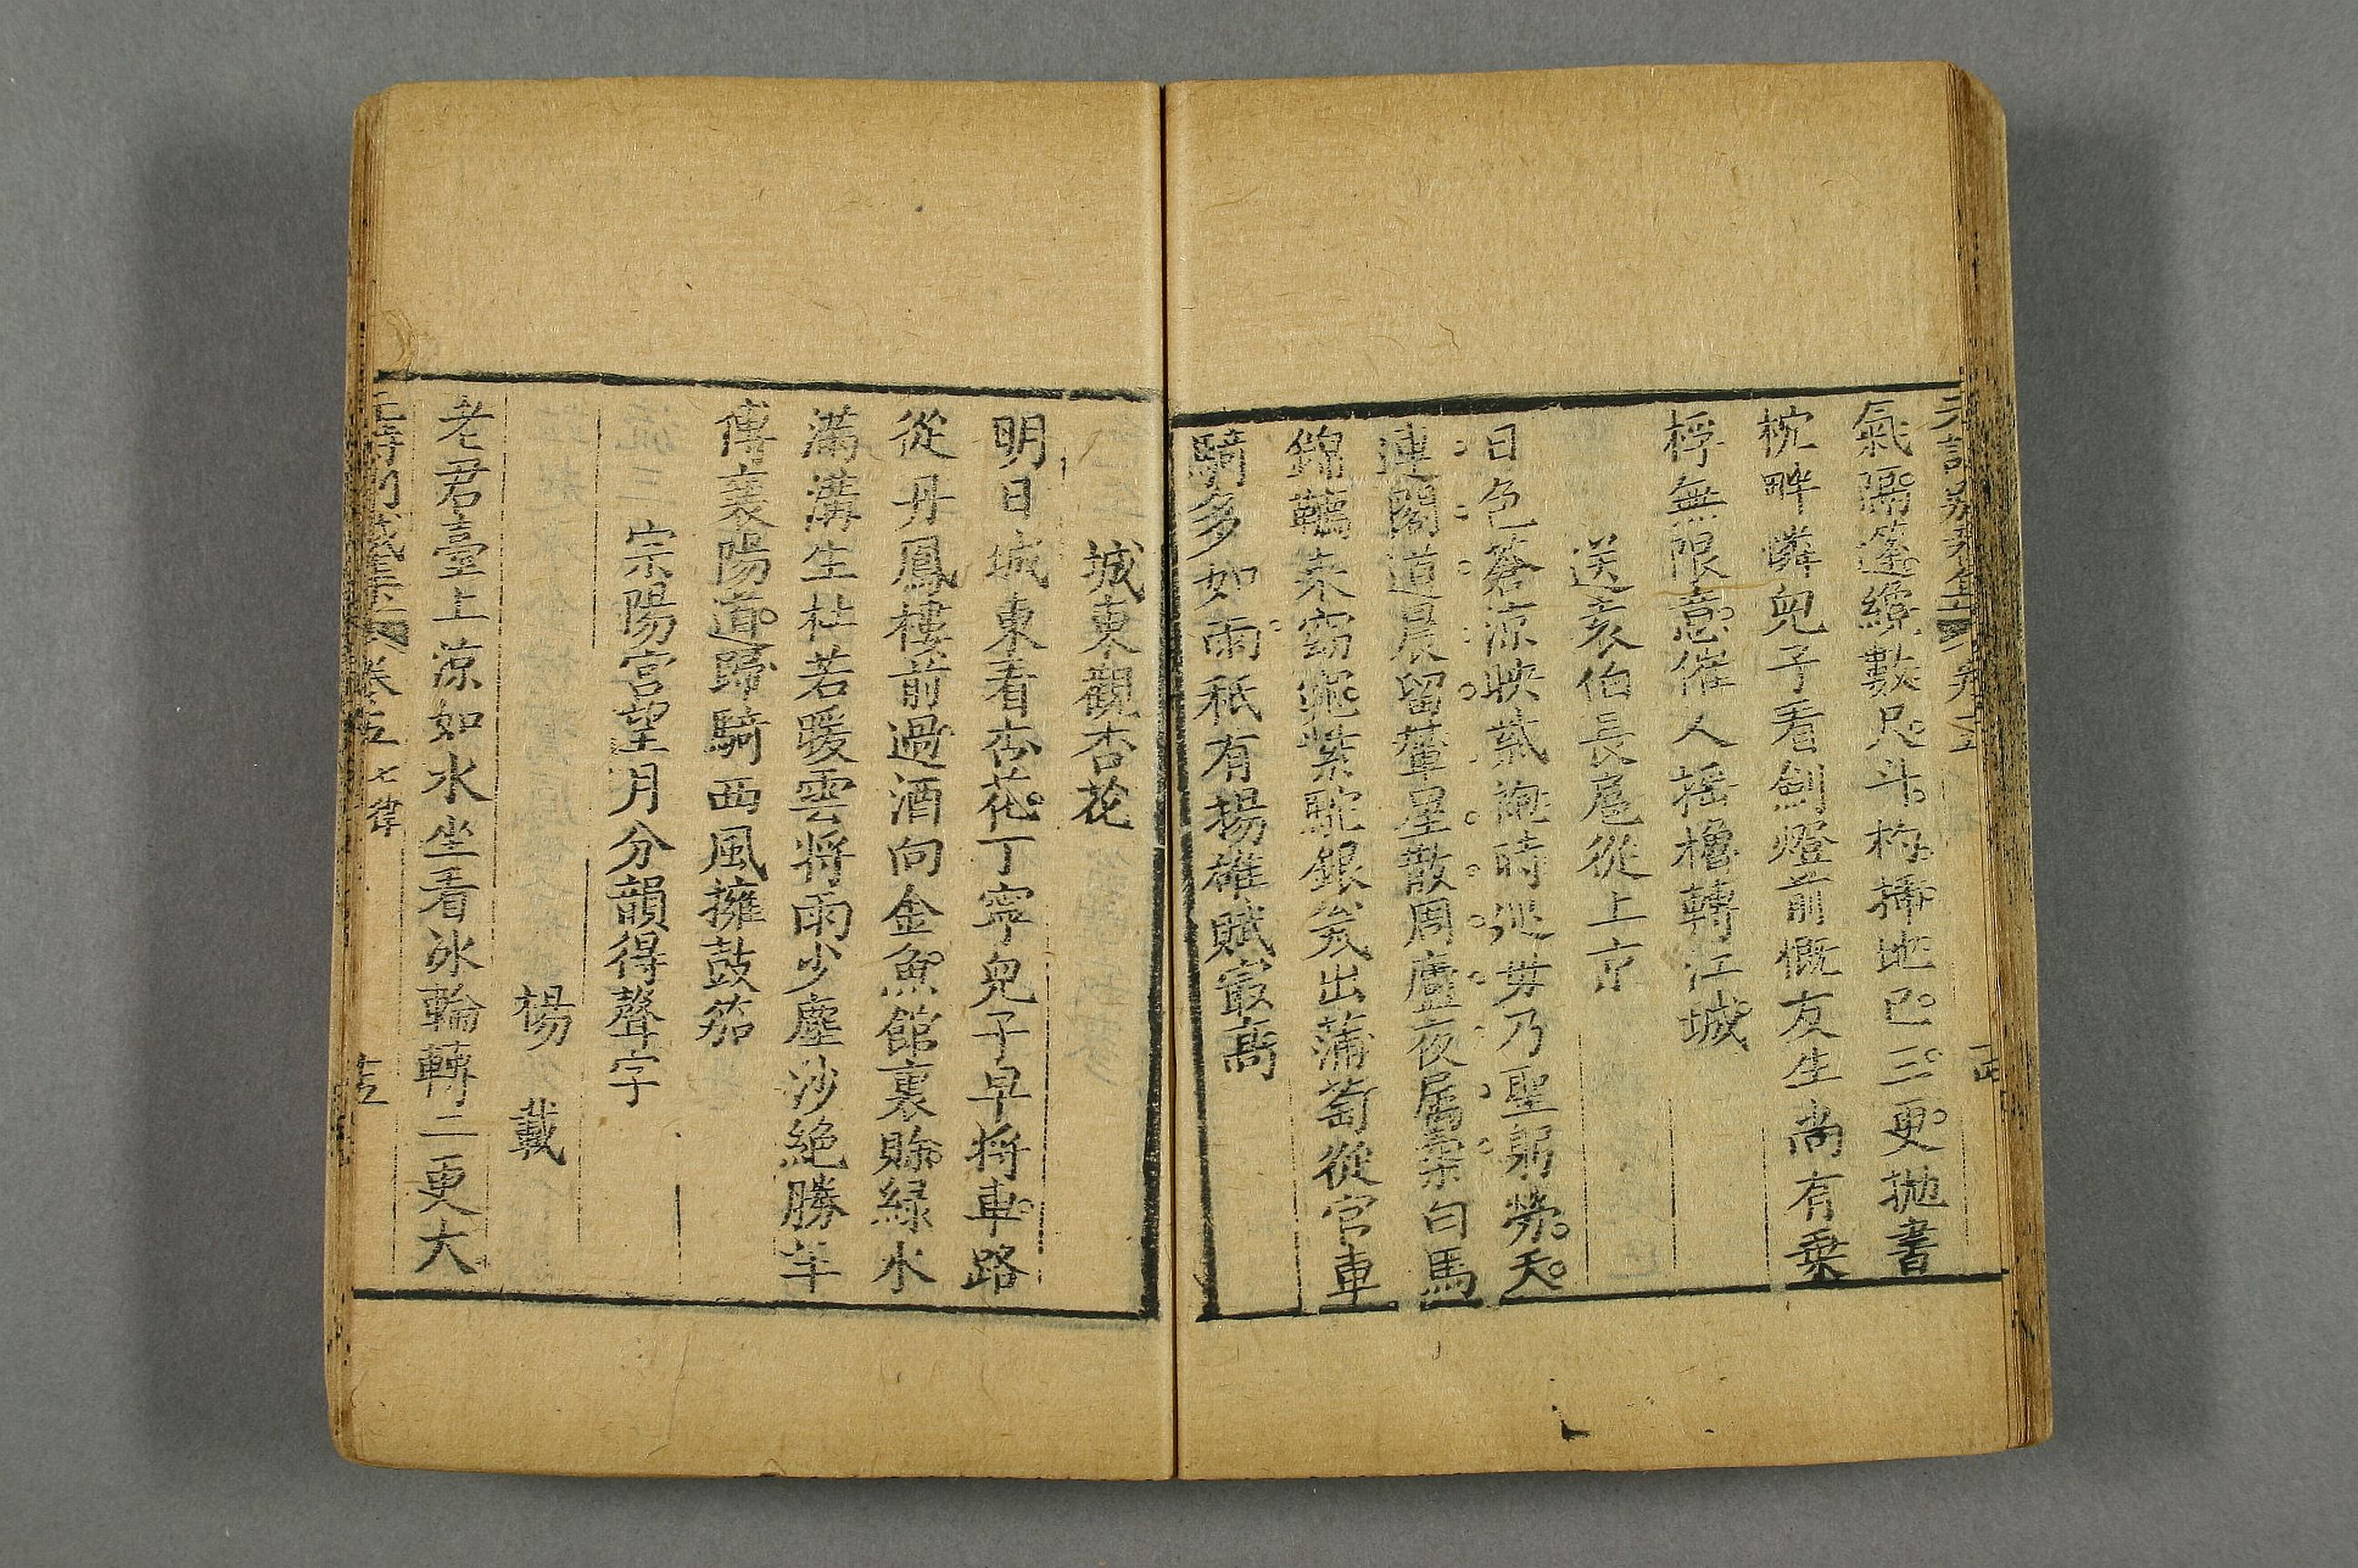 氣隔篷纔數尺斗杓揷地已三更拋書
枕畔憐兒子看劍燈前慨友生尚有乗
桴無限意催人揺櫓轉江城
送袁伯長扈從上京
日色蒼涼映赭袍時巡毋乃聖躬勞天
連閣道晨留輦星散周廬夜屬櫜白馬
錦韉來窈窕紫駝銀瓮出蒲萄從官車
騎多如雨秖有揚雄賦最高
城東觀杏花
明日城東看杏花丁寧兒子早将車路
從丹鳳樓前過酒向金魚館裏賒緑水
滿溝生杜若暖雲将雨少塵沙絶勝羊
傅襄陽道歸騎西風擁鼓笳
宗陽宮望月分韻得聲字
楊載
老君臺上涼如水坐看冰輪轉二更大
卷五 七律